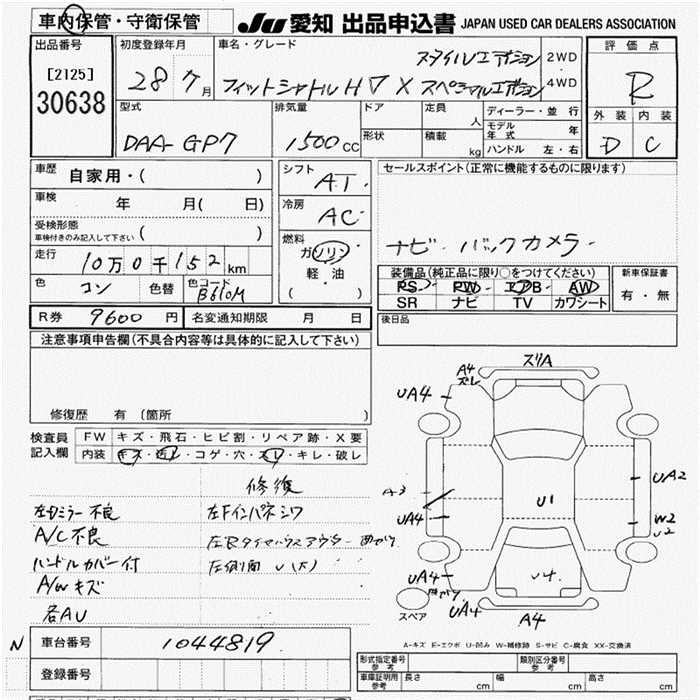 車内保管・守衛保管
JU 愛知 出品申込書 JAPAN USED CAR DEALERS ASSOCIATION
出品番号
[2125]
30638
初度登録年月
28 7月
車名・グレード
スタイルエディション
フィットシャトルHV X スペシャルエディション
2WD
4WD
評価点
R
外装 内装
D C
型式
DAA-GP7
排気量
1500cc
ドア
形状
定員 人
積載 kg
ディーラー・並行
モデル年式 年
ハンドル 左・右
車歴
自家用・( )
車検
年 月( 日)
受検形態
車検付きのみ記入して下さい
( )
走行
10万0千152km
色
コン
色替
色コード
B610M
シフト
AT
冷房
AC
燃料
ガソリン
軽・油
( )
セールスポイント(正常に機能するものに限ります)
ナビ・バックカメラ
装備品(純正品に限り○をつけてください)
PS PW エアB AW
SR ナビ TV カワシート
新車保証書
有・無
R券 9600円
名変通知期限 月 日
後日品
注意事項申告欄(不具合内容等は具体的に記入して下さい)
修復歴 有(箇所 )
検査員
記入欄
FW キズ・飛石・ヒビ割・リペア跡・X要
内装 キズ・汚レ・コゲ・穴・スレ・キレ・破レ
修復
左ドミラー不良
左Fインパネシワ
A/C不良
左Rタイヤハウスアウター曲がり
ハンドルカバー付
左側面U(大)
A/Wキズ
各AU
スリA
A4
スレ
UA4
A3
UA4
U1
UA2
W2
U2
UA4
曲がり
UA4
U4
A4
スペア
A-キズ E-エクボ U-凹み W-補修跡 S-サビ C-腐食 XX-交換済
N
車台番号 1044819
登録番号
形式指定番号
参考
類別区分番号
参考
車庫証明用
参考
長さ cm 幅 cm 高さ cm